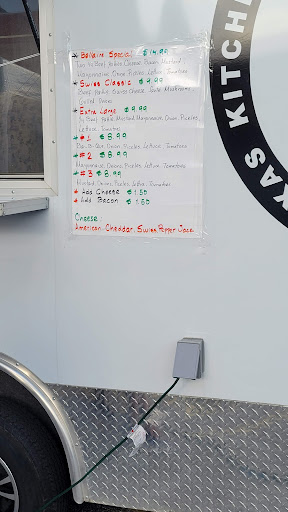 * Bonaire Special $14.99
Two ¼ Beef Patties, Cheese, Bacon, Mustard,
Mayonnaise, Onions, Pickles, Lettuce, Tomatoes
* Swiss Classic $9.99
Beef Pattie, Swiss Cheese, Mushrooms
Onions
* Extra Large $9.99
¼ Beef Patties, Mustard, Mayonnaise, Onions, Pickles,
Lettuce, Tomatoes
* #1 $8.99
Bar-B-Que, Onions, Pickles, Lettuce, Tomatoes
* #2 $8.99
Mayonnaise, Onions, Pickles, Lettuce, Tomatoes
* #3 $8.99
Mustard, Onions, Pickles, Lettuce, Tomatoes
* Add Cheese $1.50
* Add Bacon $1.50
Cheese:
American, Cheddar, Swiss, Pepper Jack
XAS KITCHE